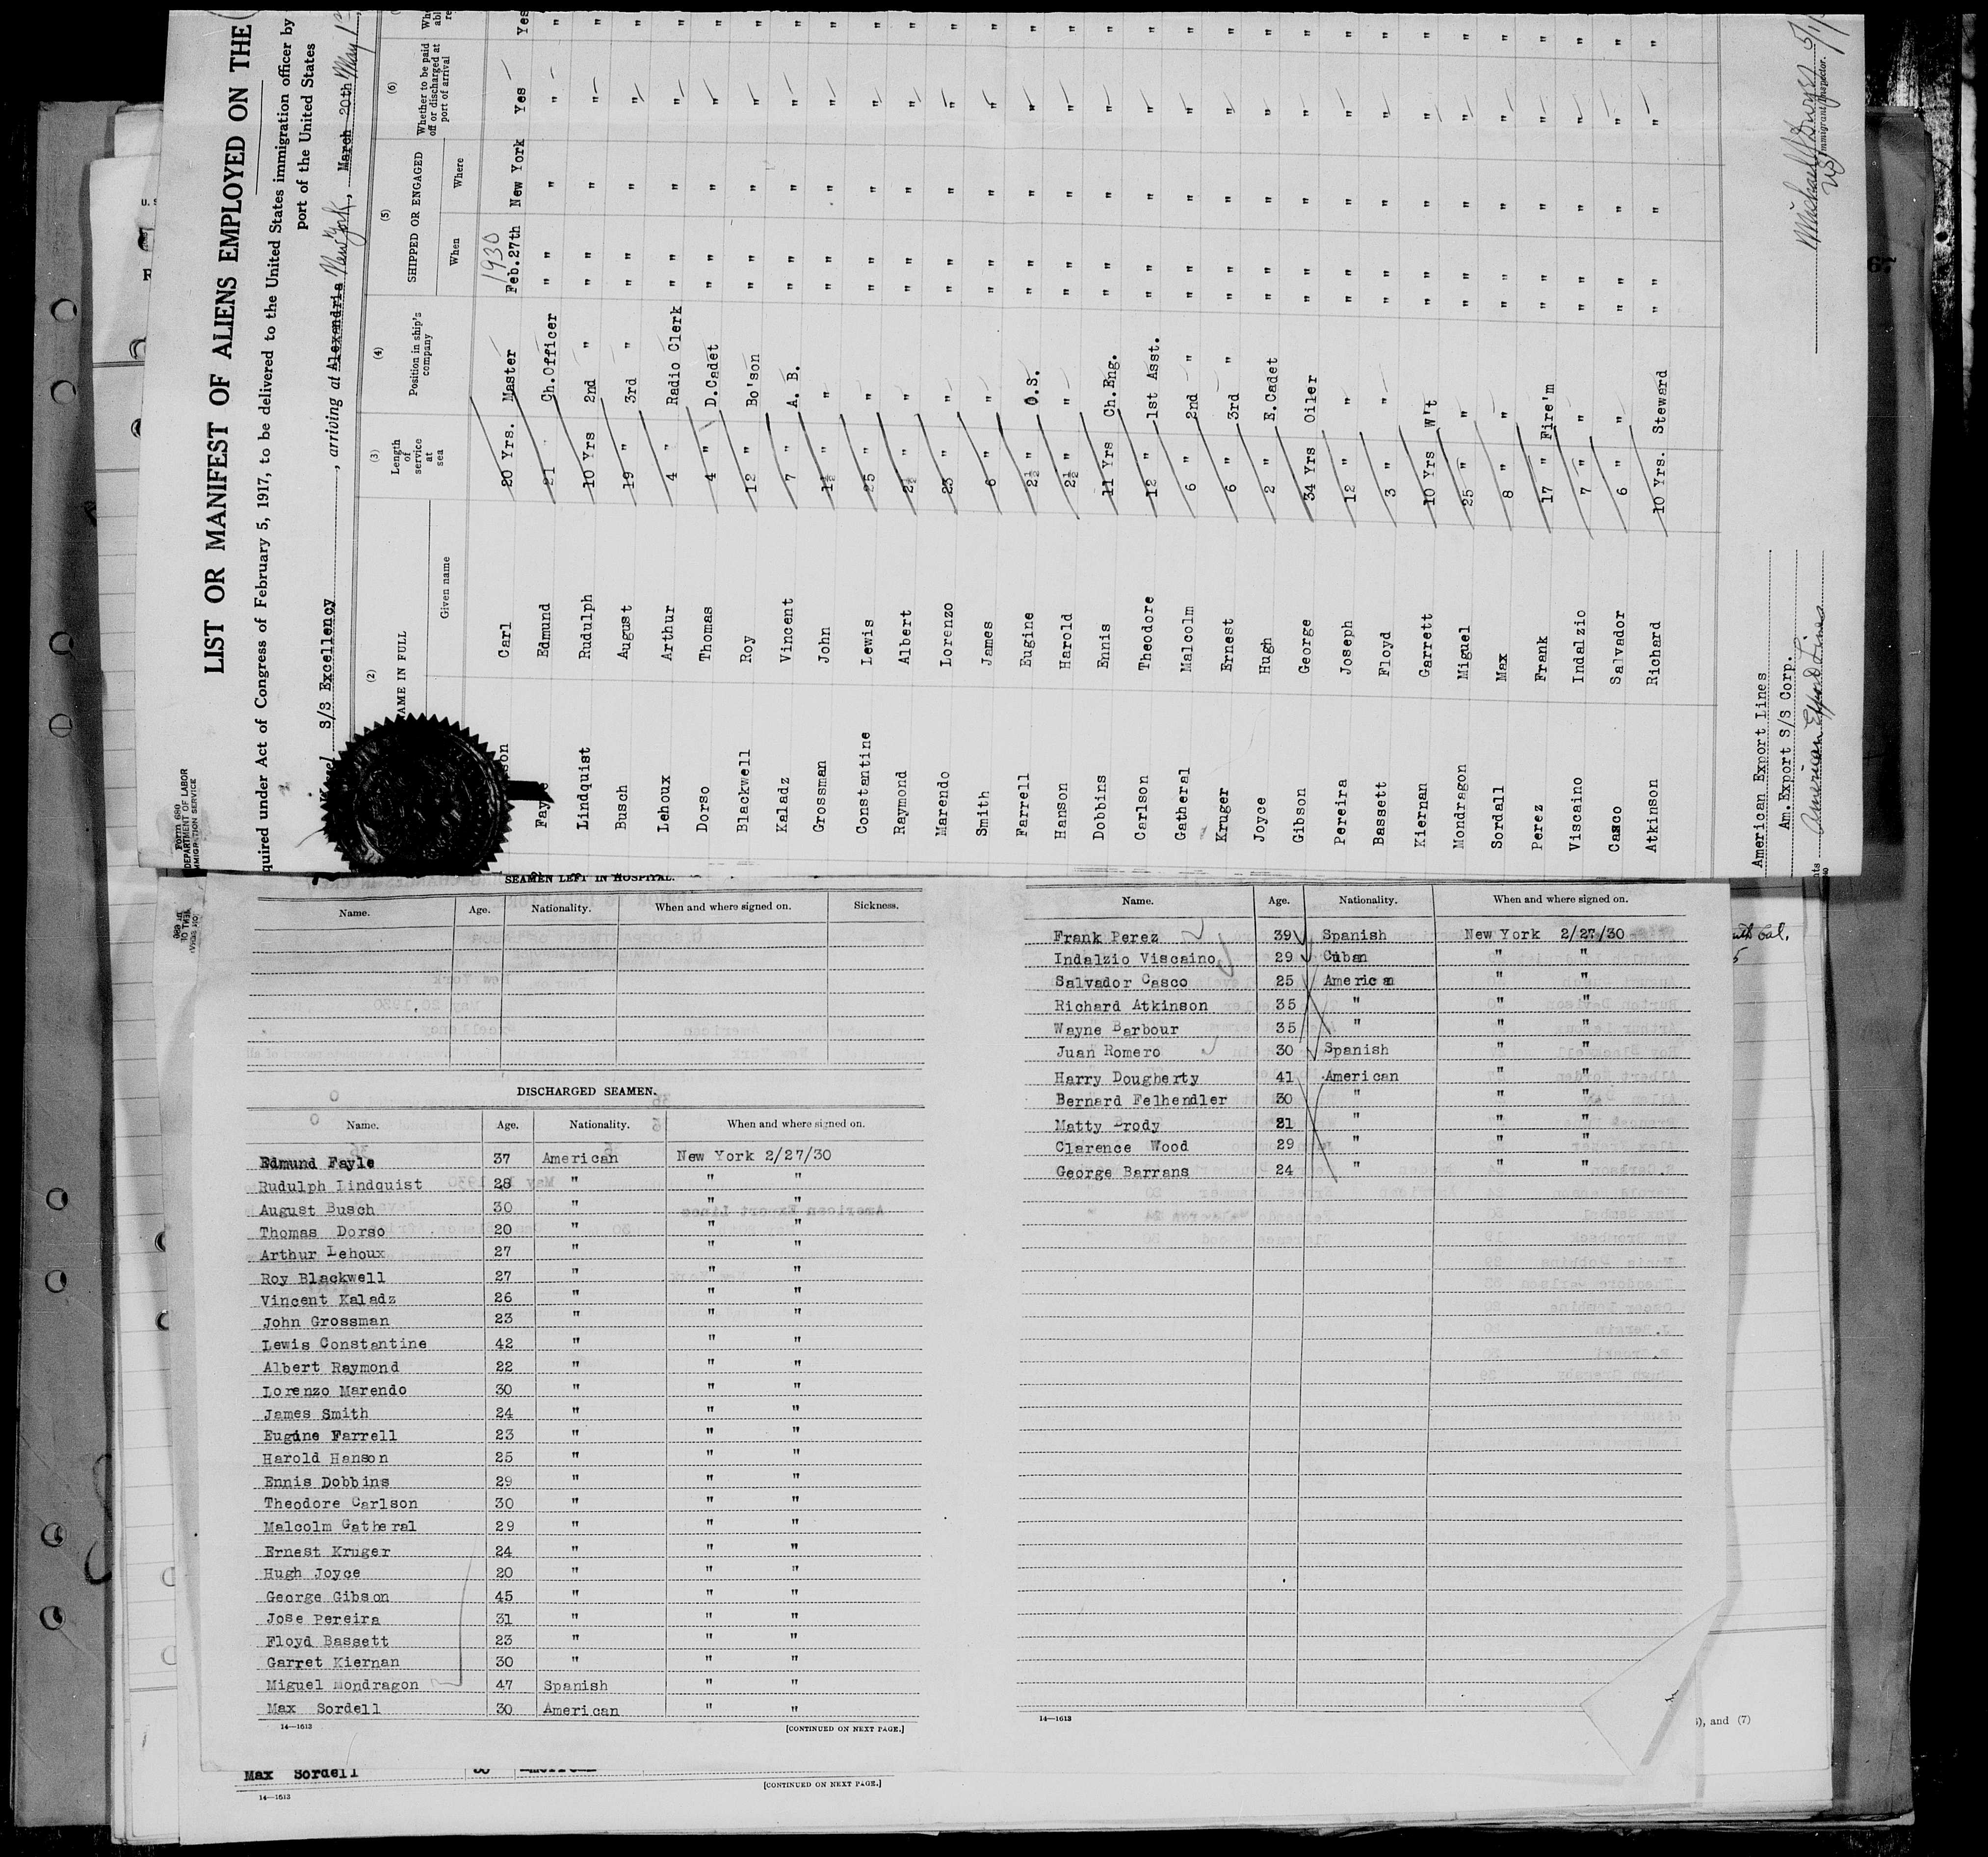 Form 680
DEPARTMENT OF LABOR
IMMIGRATION SERVICE
LIST OR MANIFEST OF ALIENS EMPLOYED ON THE
quired under Act of Congress of February 5, 1917, to be delivered to the United States immigration officer by
port of the United States
S/S Excellency, arriving at Alexandria New York, March 20th May 1st
(2) (3) (4) (5) (6)
NAME IN FULL Length of service at sea Position in ship's company SHIPPED OR ENGAGED Whether to be paid off or discharged at port of arrival
Given name When Where
1930
son Carl 20 Yrs. Master Feb.27th New York Yes Yes
Fayle Edmund 21 Ch.Officer " " " " "
Lindquist Rudulph 10 Yrs 2nd " " " " " "
Busch August 19 " 3rd " " " " " "
Lehoux Arthur 4 " Radio Clerk " " " " "
Dorso Thomas 4 " D.Cadet " " " " "
Blackwell Roy 12 " Bo'son " " " " "
Kaladz Vincent 7 " A. B. " " " " "
Grossman John 1½ " " " " " " "
Constantine Lewis 25 " " " " " " "
Raymond Albert 2½ " " " " " " "
Marendo Lorenzo 23 " " " " " " "
Smith James 6 " " " " " " "
Farrell Eugine 2½ " O.S. " " " " "
Hanson Harold 2½ " " " " " " "
Dobbins Ennis 11 Yrs Ch.Eng. " " " " "
Carlson Theodore 12 " 1st Asst. " " " " "
Gatheral Malcolm 6 " 2nd " " " " " "
Kruger Ernest 6 " 3rd " " " " " "
Joyce Hugh 2 " E.Cadet " " " " "
Gibson George 34 Yrs Oiler " " " " "
Pereira Joseph 12 " " " " " " "
Bassett Floyd 3 " " " " " " "
Kiernan Garrett 10 Yrs W't " " " " "
Mondragon Miguel 25 " " " " " " "
Sordall Max 8 " " " " " " "
Perez Frank 17 " Fire'm " " " " "
Viscaino Indalzio 7 " " " " " " "
Casco Salvador 6 " " " " " " "
Atkinson Richard 10 Yrs. Steward " " " " "
American Export Lines
Am. Export S/S Corp.
American Export Lines
Immigrant Inspector.
SEAMEN LEFT IN HOSPITAL.
Name. Age. Nationality. When and where signed on. Sickness.
DISCHARGED SEAMEN.
Name. Age. Nationality. When and where signed on.
Edmund Fayle 37 American New York 2/27/30
Rudulph Lindquist 28 " " "
August Busch 30 " " "
Thomas Dorso 20 " " "
Arthur Lehoux 27 " " "
Roy Blackwell 27 " " "
Vincent Kaladz 26 " " "
John Grossman 23 " " "
Lewis Constantine 42 " " "
Albert Raymond 22 " " "
Lorenzo Marendo 30 " " "
James Smith 24 " " "
Eugine Farrell 23 " " "
Harold Hanson 25 " " "
Ennis Dobbins 29 " " "
Theodore Carlson 30 " " "
Malcolm Gatheral 29 " " "
Ernest Kruger 24 " " "
Hugh Joyce 20 " " "
George Gibson 45 " " "
Jose Pereira 31 " " "
Floyd Bassett 23 " " "
Garret Kiernan 30 " " "
Miguel Mondragon 47 Spanish " "
Max Sordell 30 American " "
14—1613 [CONTINUED ON NEXT PAGE.]
Name. Age. Nationality. When and where signed on.
Frank Perez 39 Spanish New York 2/27/30
Indalzio Viscaino 29 Cuban " "
Salvador Casco 25 American " "
Richard Atkinson 35 " " "
Wayne Barbour 35 " " "
Juan Romero 30 Spanish " "
Harry Dougherty 41 American " "
Bernard Felhendler 30 " " "
Matty Brody 21 " " "
Clarence Wood 29 " " "
George Barrans 24 " " "
14—1613
), and (7)
Max Sordell
14—1613 [CONTINUED ON NEXT PAGE.]